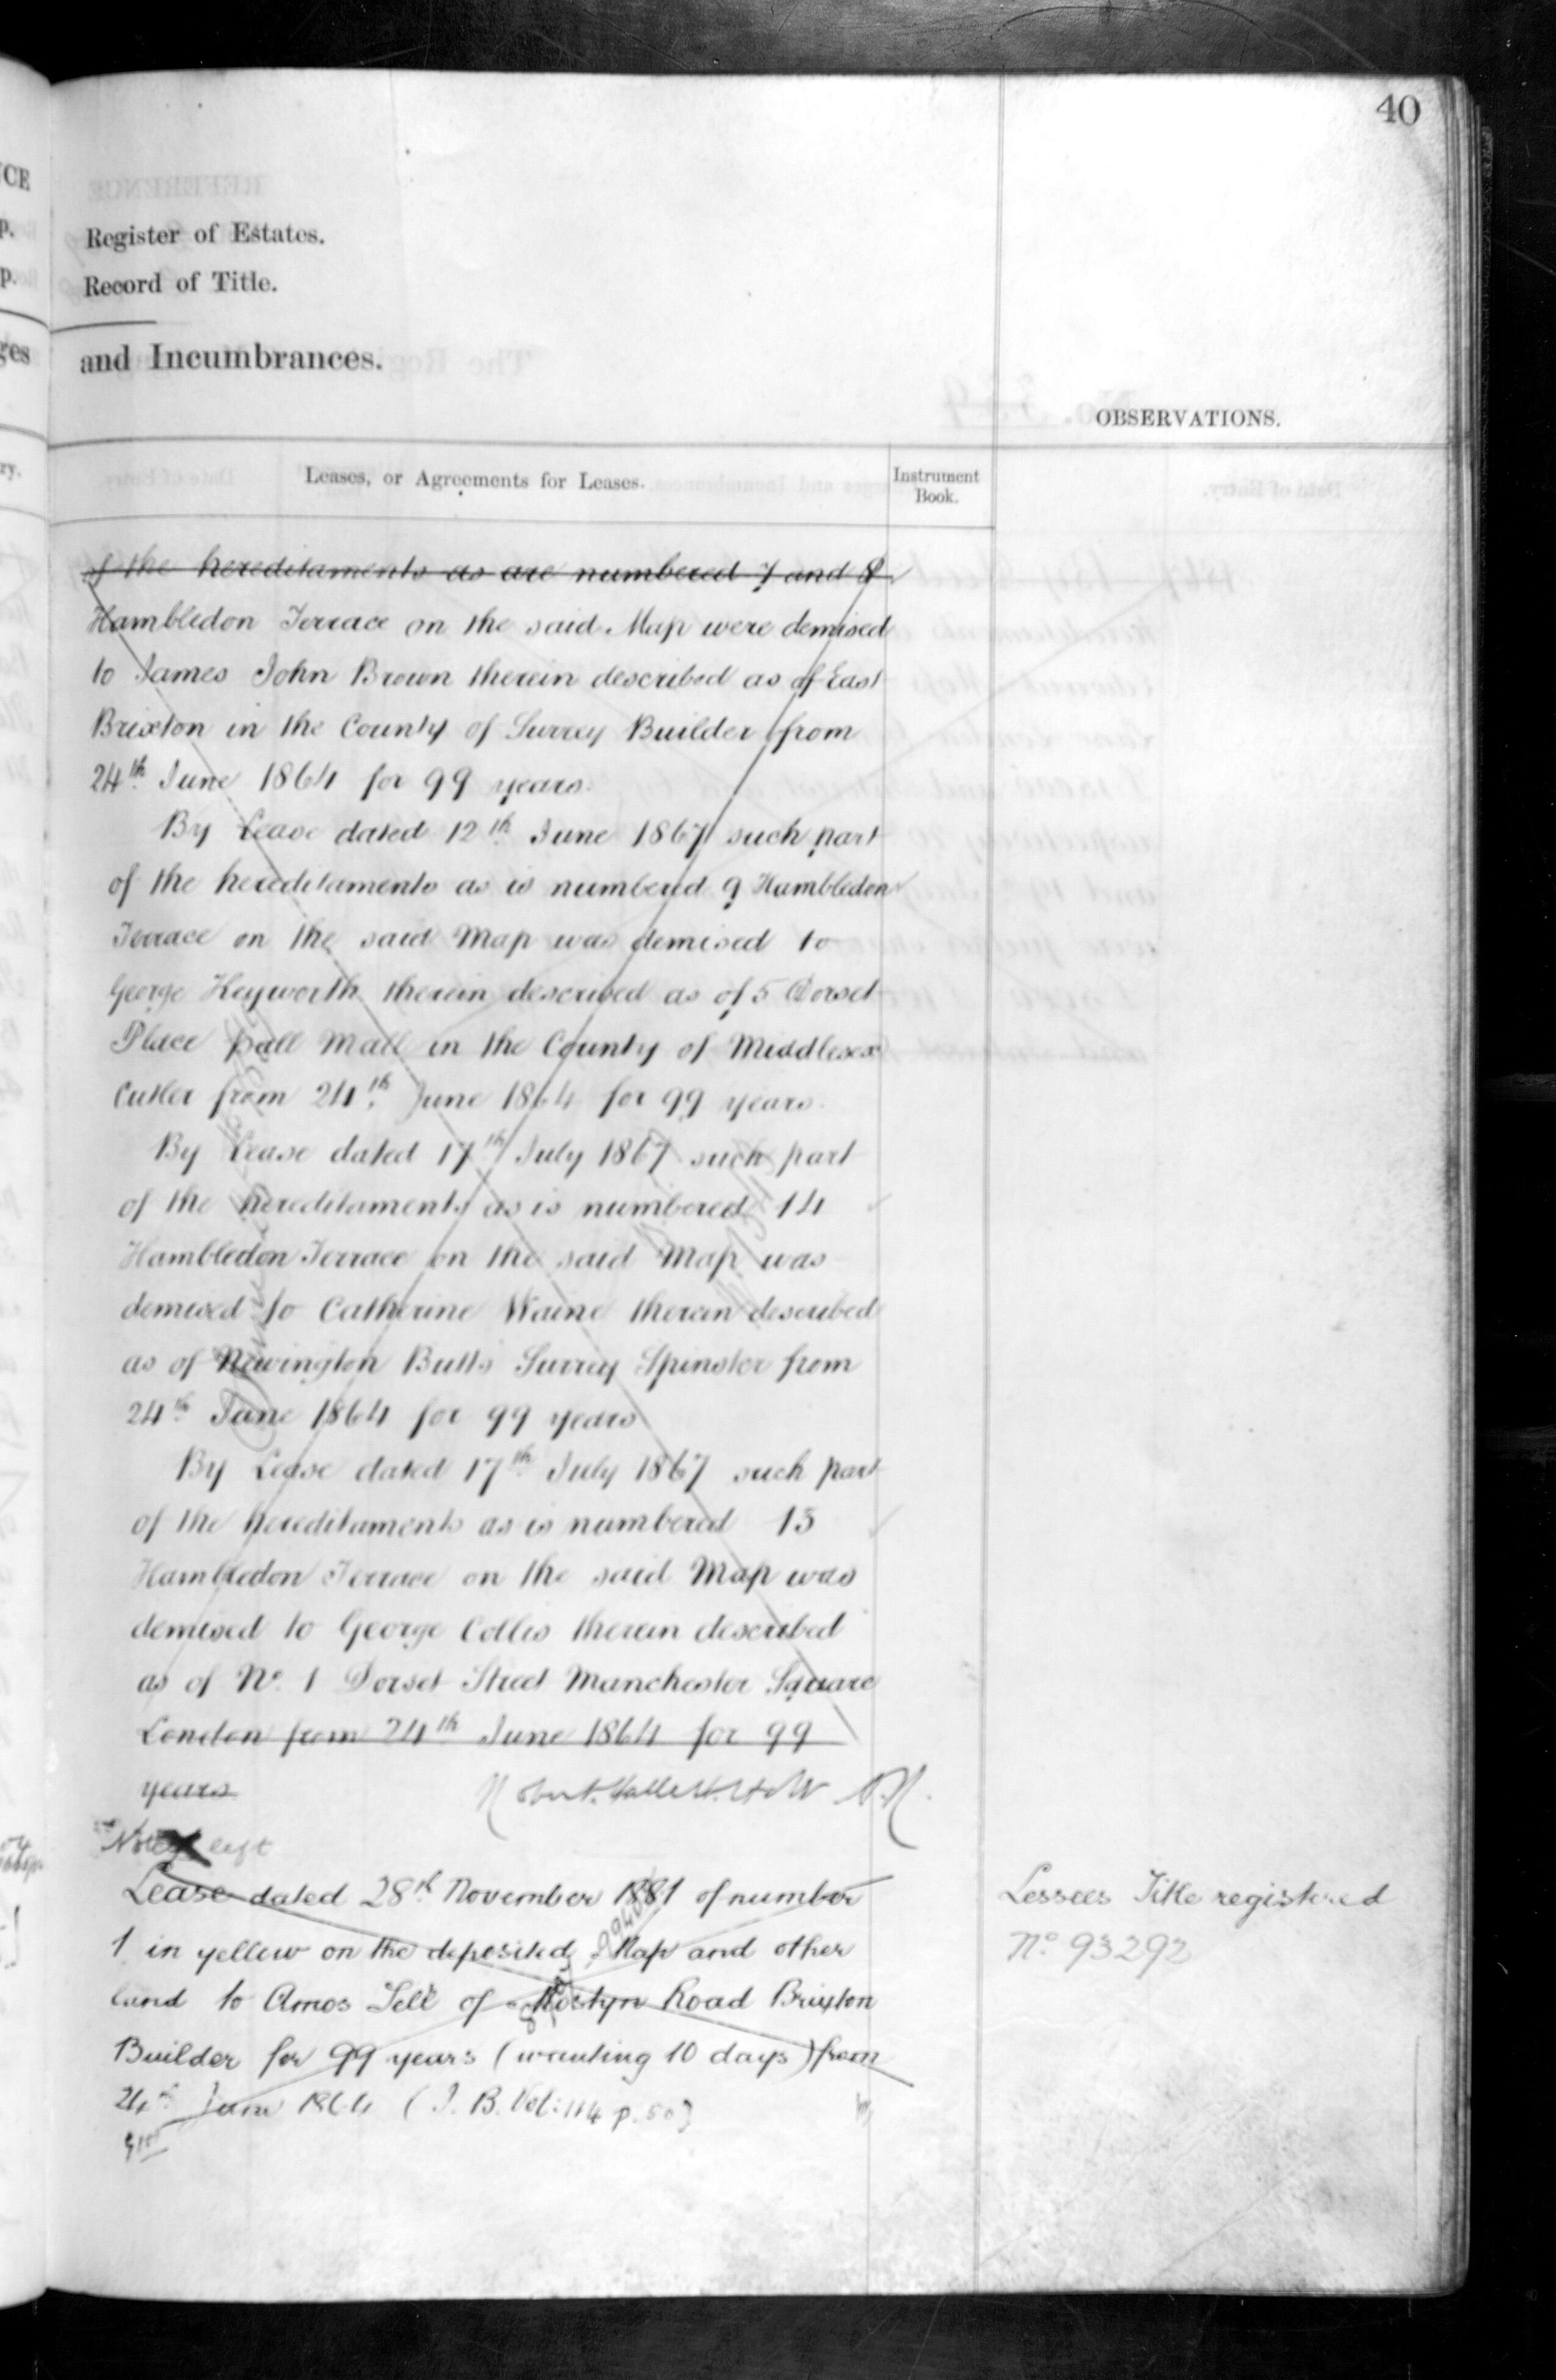 40
Register of Estates.
Record of Title.
and Incumbrances.
OBSERVATIONS.
Leases, or Agreements for Leases.
Instrument
Book.
of the hereditaments as are numbered 7 and 8
Hambledon Terrace on the said Map were demised
to James John Brown therein described as of East
Brixton in the County of Surrey Builder from
24th June 1864 for 99 years.
By Lease dated 12th June 1867 such part
of the hereditaments as is numbered 9 Hambledon
Terrace on the said Map was demised to
George Heyworth therein described as of 5 Dorset
Place Pall Mall in the County of Middlesex
Cutler from 24th June 1864 for 99 years.
By Lease dated 17th July 1867 such part
of the hereditaments as is numbered 14
Hambledon Terrace on the said Map was
demised to Catherine Waine therein described
as of Newington Butts Surrey Spinster from
24th June 1864 for 99 years
By Lease dated 17th July 1867 such part
of the hereditaments as is numbered 13
Hambledon Terrace on the said Map was
demised to George Collis therein described
as of No. 1 Dorset Street Manchester Square
London from 24th June 1864 for 99
years
Robert Hallett Holt
left
Lease dated 28th November 1881 of number
1 in yellow on the deposited Map and other
land to Amos Sell of Rostyn Road Brixton
Builder for 99 years (wanting 10 days) from
24th June 1864 (I. B. Vol: 114 p. 50)
Lessees Title registered
No 93292